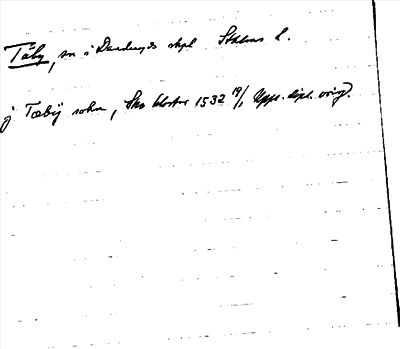 Täby, sn i Danderyds skpl Sthlms l.
j Tæbij sokn, Sko kloster 1532 19/1 Upps. dipl. orig.